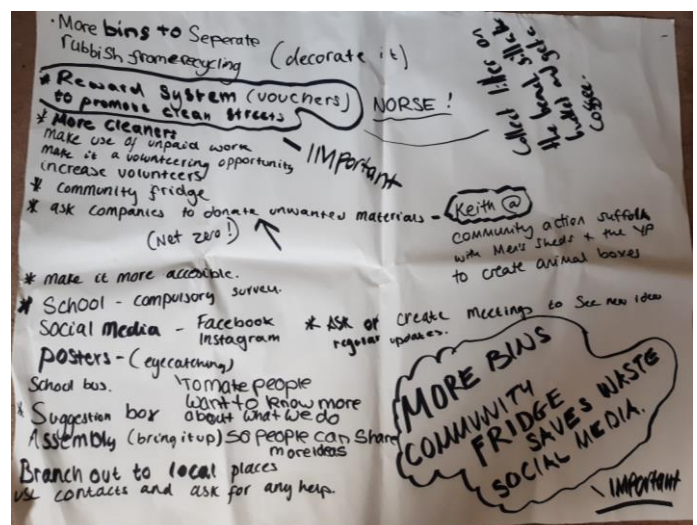 · More bins to Seperate
rubbish from recycling (decorate it)
* Reward System (vouchers)
to promote clean streets
NORSE !
Collect litter on
the beach, fill a
bucket and get a
coffee.
* More cleaners
make use of unpaid work
make it a volunteering opportunity
increase volunteers
- IMPortant
* community fridge
* ask companies to donate unwanted materials - Keith @
(Net zero!)
community action suffolk
with Men's Sheds + the YP
to create animal boxes
* make it more accesible.
* School - compulsory survey.
Social Media - Facebook
Instagram
* ASK or create meetings to see new idea
regular updates.
Posters - (eyecatching)
School bus.
To make people
want to know more
about what we do
* Suggestion box
Assembly (bring it up) so people can share
more ideas
Branch out to local places
use contacts and ask for any help.
MORE BINS
COMMUNITY
FRIDGE
SAVES WASTE
SOCIAL MEDIA.
\ IMPOrtant